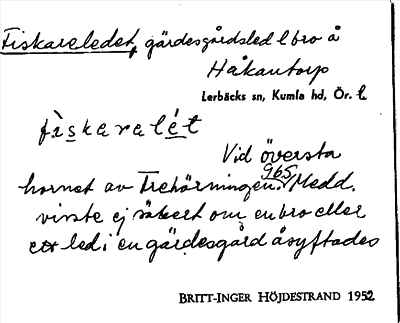 Fiskareledet, gärdesgårdsled l bro å
Håkantorp
Lerbäcks sn, Kumla hd, Ör. l.
fìskaralét
Vid översta
965
hörnet av Trehörningen. Medd.
visste ej säkert om en bro eller
ett led i en gärdesgård åsyftades
BRITT-INGER HÖJDESTRAND 1952